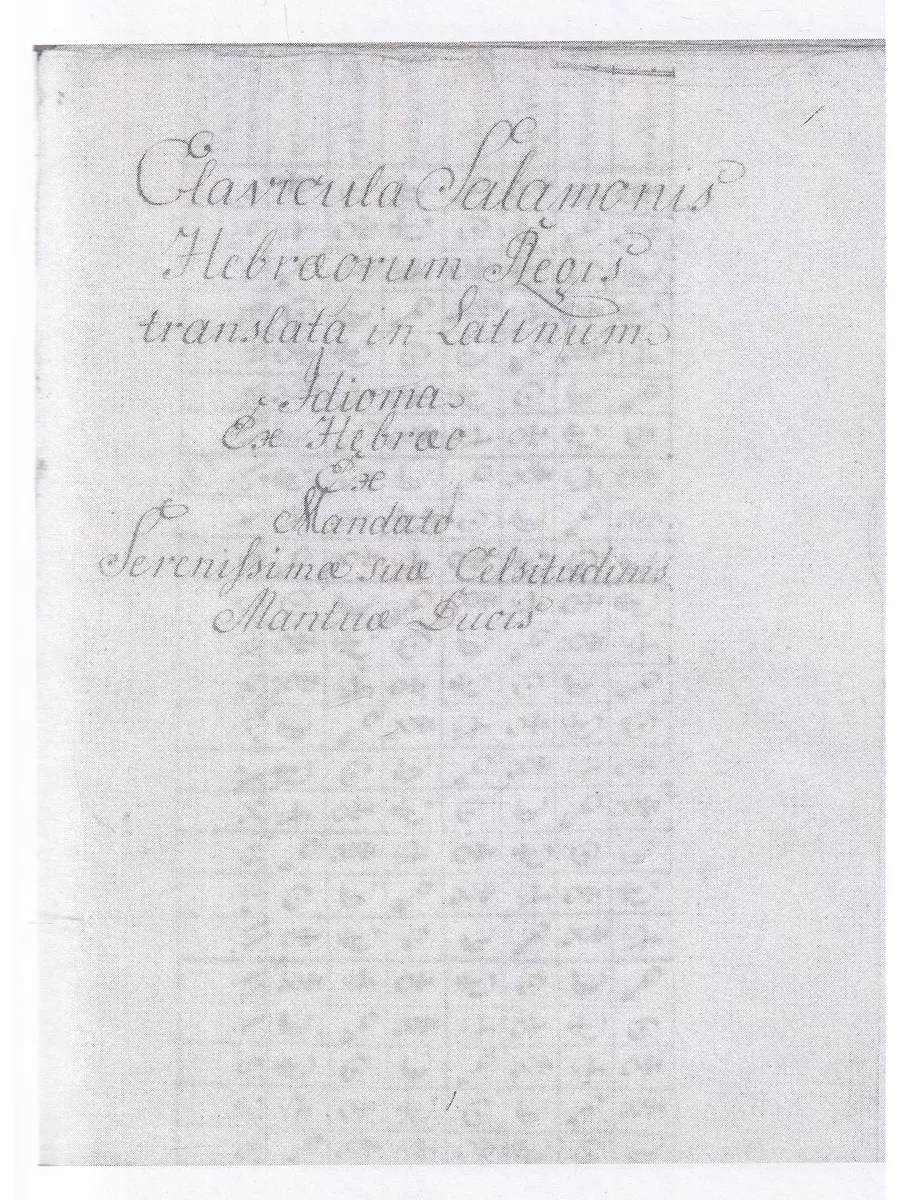 Clavicula Salamonis
Hebræorum Regis
translata in Latinum
Idioma
Ex Hebræo
Ex
Mandato
Serenissimæ suæ Celsitudinis
Mantuæ Ducis